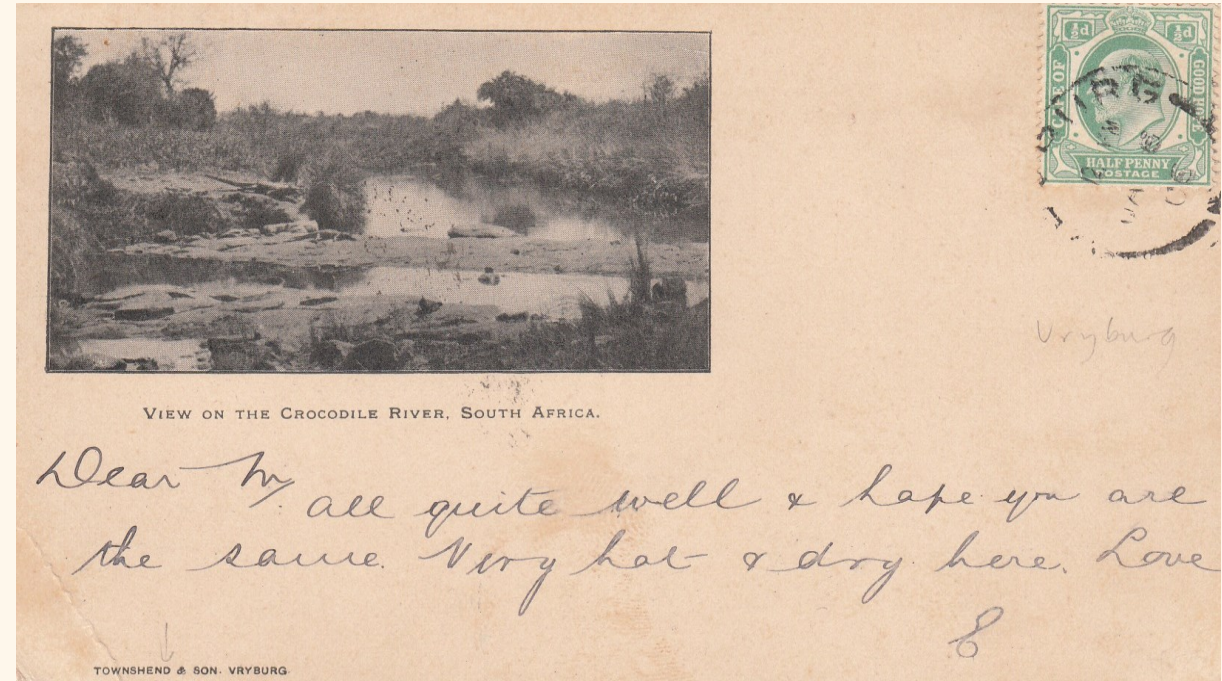 ½d ½d
CAPE OF GOOD HOPE
HALFPENNY
POSTAGE
Vryburg
VIEW ON THE CROCODILE RIVER, SOUTH AFRICA.
Dear M
all quite well & hope you are
the same. Very hot & dry here. Love
E
TOWNSHEND & SON. VRYBURG.